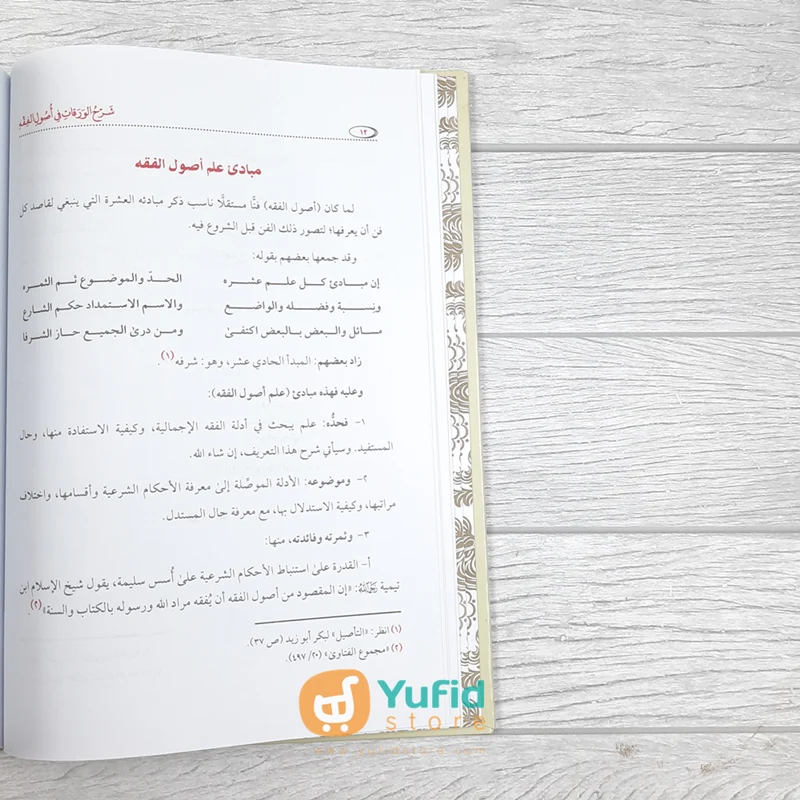 شَرْحُ الوَرَقَاتِ فِي أُصُولِ الفِقْهِ
١٢
مبادئ علم أصول الفقه
لما كان (أصول الفقه) فنًّا مستقلًّا ناسب ذكر مبادئه العشرة التي ينبغي لقاصد كل
فن أن يعرفها؛ لتصور ذلك الفن قبل الشروع فيه.
وقد جمعها بعضهم بقوله:
إن مبـادئ كـل علـم عشـره الحـدّ والموضـوع ثـم الثمـره
ونسـبة وفضلـه والواضـع والاسـم الاستمـداد حكـم الشارع
مسـائل والـبعض بـالبعض اكتفـىٰ ومـن درىٰ الجميـع حـاز الشـرفا
زاد بعضهم: المبدأ الحادي عشر، وهو: شرفه(١).
وعليه فهذه مبادئ (علم أصول الفقه):
١- فحدُّه: علم يبحث في أدلة الفقه الإجمالية، وكيفية الاستفادة منها، وحال
المستفيد. وسيأتي شرح هذا التعريف، إن شاء الله.
٢- وموضوعه: الأدلة الموصِّلة إلىٰ معرفة الأحكام الشرعية وأقسامها، واختلاف
مراتبها، وكيفية الاستدلال بها، مع معرفة حال المستدل.
٣- وثمرته وفائدته، منها:
أ- القدرة علىٰ استنباط الأحكام الشرعية علىٰ أُسس سليمة، يقول شيخ الإسلام ابن
تيمية رَحِمَهُ اللَّهُ: «إن المقصود من أصول الفقه أن يُفقه مراد الله ورسوله بالكتاب والسنة»(٢).
(١) انظر: «التأصيل» لبكر أبو زيد (ص ٣٧).
(٢) «مجموع الفتاوىٰ» (٢٠/ ٤٩٧).
Yufid
store
www.yufidstore.com